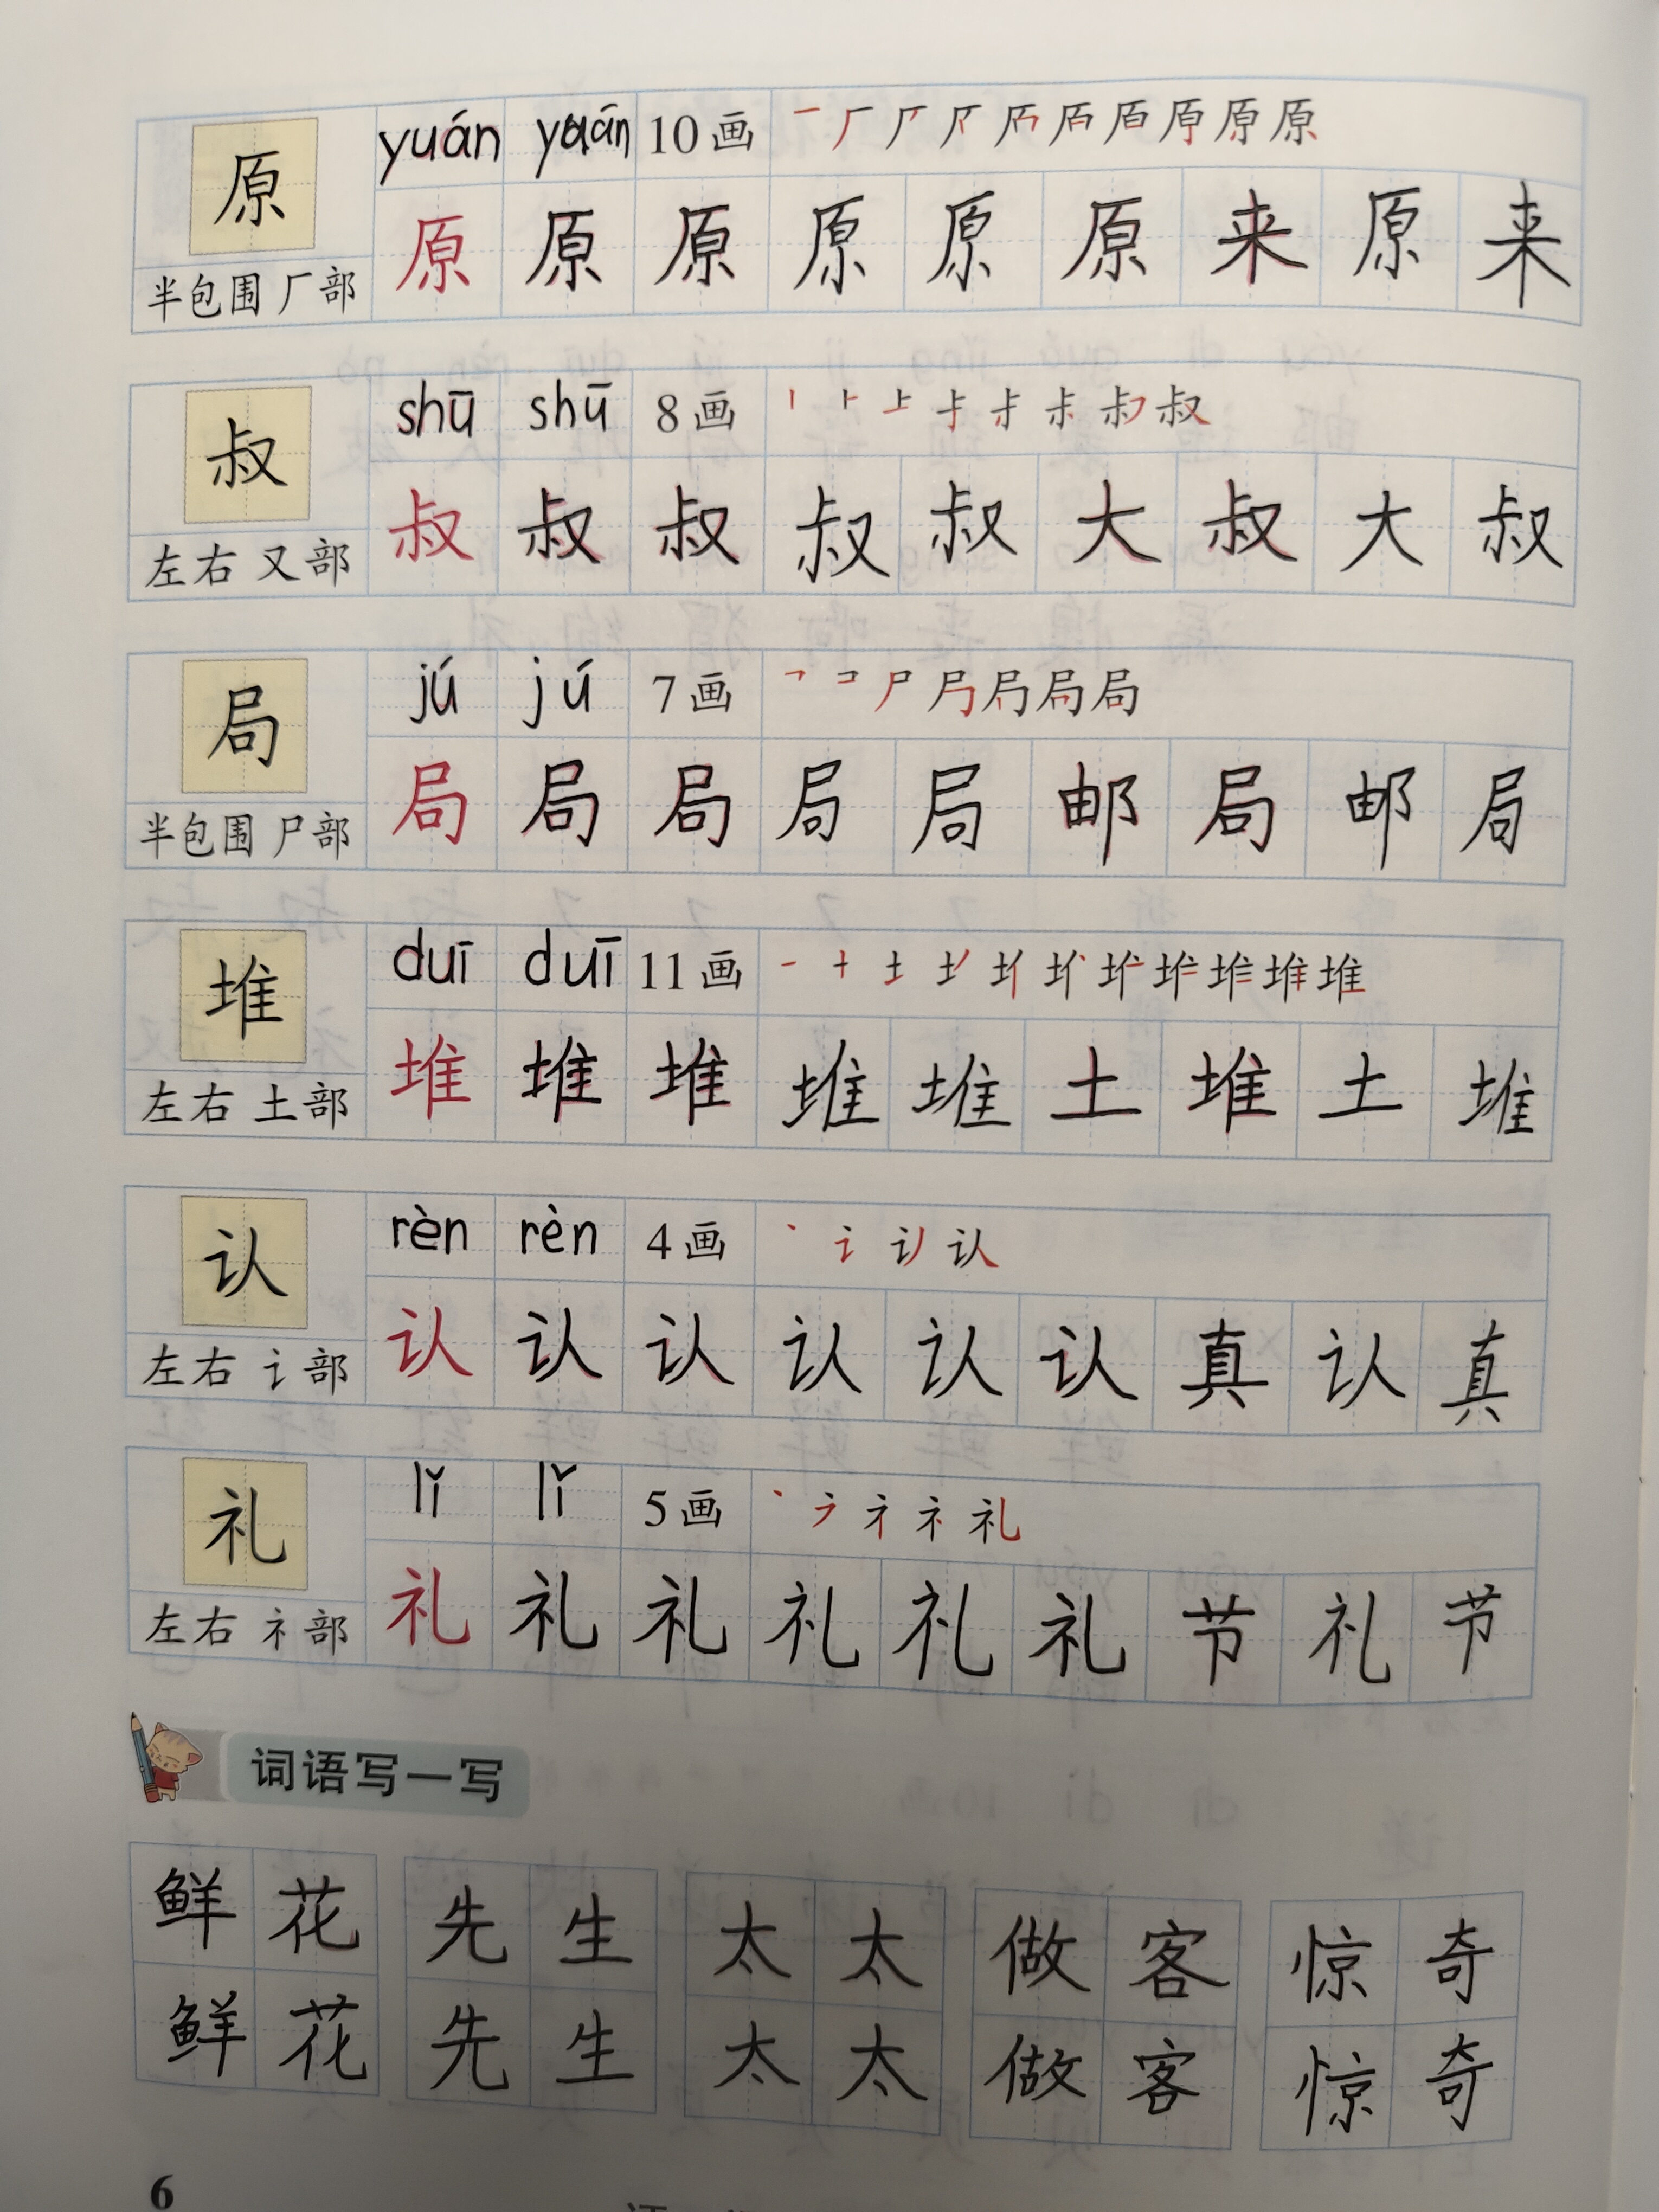 yuán yuán 10画 一 厂 厂 厂 原
原 原 原 原 原 原 原 来 原 来
半包围 厂部
shū shū 8画 叔
叔 叔 叔 叔 叔 叔 大 叔 大 叔
左右 又部
jú jú 7画 尸 局
局 局 局 局 局 局 邮 局 邮 局
半包围 尸部
duī duī 11画 一 十 土 堆
堆 堆 堆 堆 堆 堆 土 堆 土 堆
左右 土部
rèn rèn 4画 丶 讠 认
认 认 认 认 认 认 认 真 认 真
左右 讠部
lǐ lǐ 5画 丶 礻 礼
礼 礼 礼 礼 礼 礼 礼 节 礼 节
左右 礻部
词语写一写
鲜花 先生 太太 做客 惊奇
鲜花 先生 太太 做客 惊奇
6